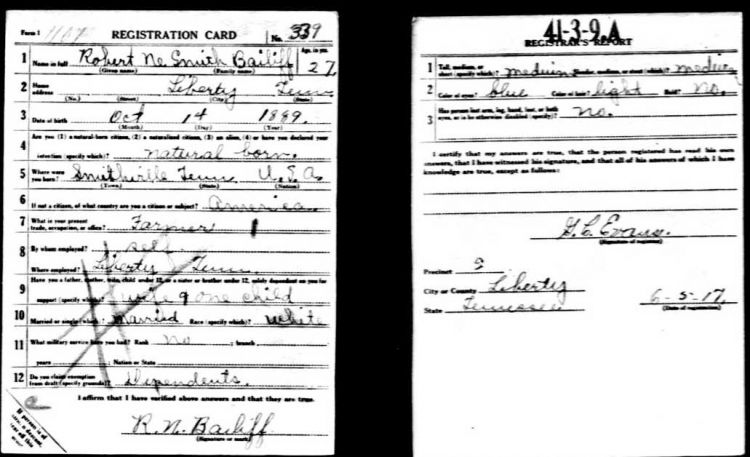 Form 1 REGISTRATION CARD No. 339
1 Name in full Robert Ne Smith Bailiff Age, in yrs. 27
(Given name) (Family name)
2 Home address Liberty Tenn
(No.) (Street) (City) (State)
3 Date of birth Oct 14 1889.
(Month) (Day) (Year)
4 Are you (1) a natural-born citizen, (2) a naturalized citizen, (3) an alien, (4) or have you declared your
intention (specify which)? natural born.
5 Where were you born? Smithville Tenn U.S.A.
(Town) (State) (Nation)
6 If not a citizen, of what country are you a citizen or subject? America
7 What is your present trade, occupation, or office? Farmer
8 By whom employed? self
Where employed? Liberty Tenn.
9 Have you a father, mother, wife, child under 12, or a sister or brother under 12, solely dependent on you for
support (specify which)? wife & one child
10 Married or single (which)? married Race (specify which)? white
11 What military service have you had? Rank no ; branch
years ; Nation or State
12 Do you claim exemption from draft (specify grounds)? Dependents.
I affirm that I have verified above answers and that they are true.
R. N. Bailiff
(Signature or mark)
41-3-9. A
REGISTRAR'S REPORT
1 Tall, medium, or short (specify which)? medium Slender, medium, or stout (which)? medium
2 Color of eyes? blue Color of hair? light Bald? No.
3 Has person lost arm, leg, hand, foot, or both
eyes, or is he otherwise disabled (specify)? no.
I certify that my answers are true, that the person registered has read his own
answers, that I have witnessed his signature, and that all of his answers of which I have
knowledge are true, except as follows:
G. C. Evans.
(Signature of registrar)
Precinct 9
City or County Liberty
State Tennessee 6-5-17.
(Date of registration)